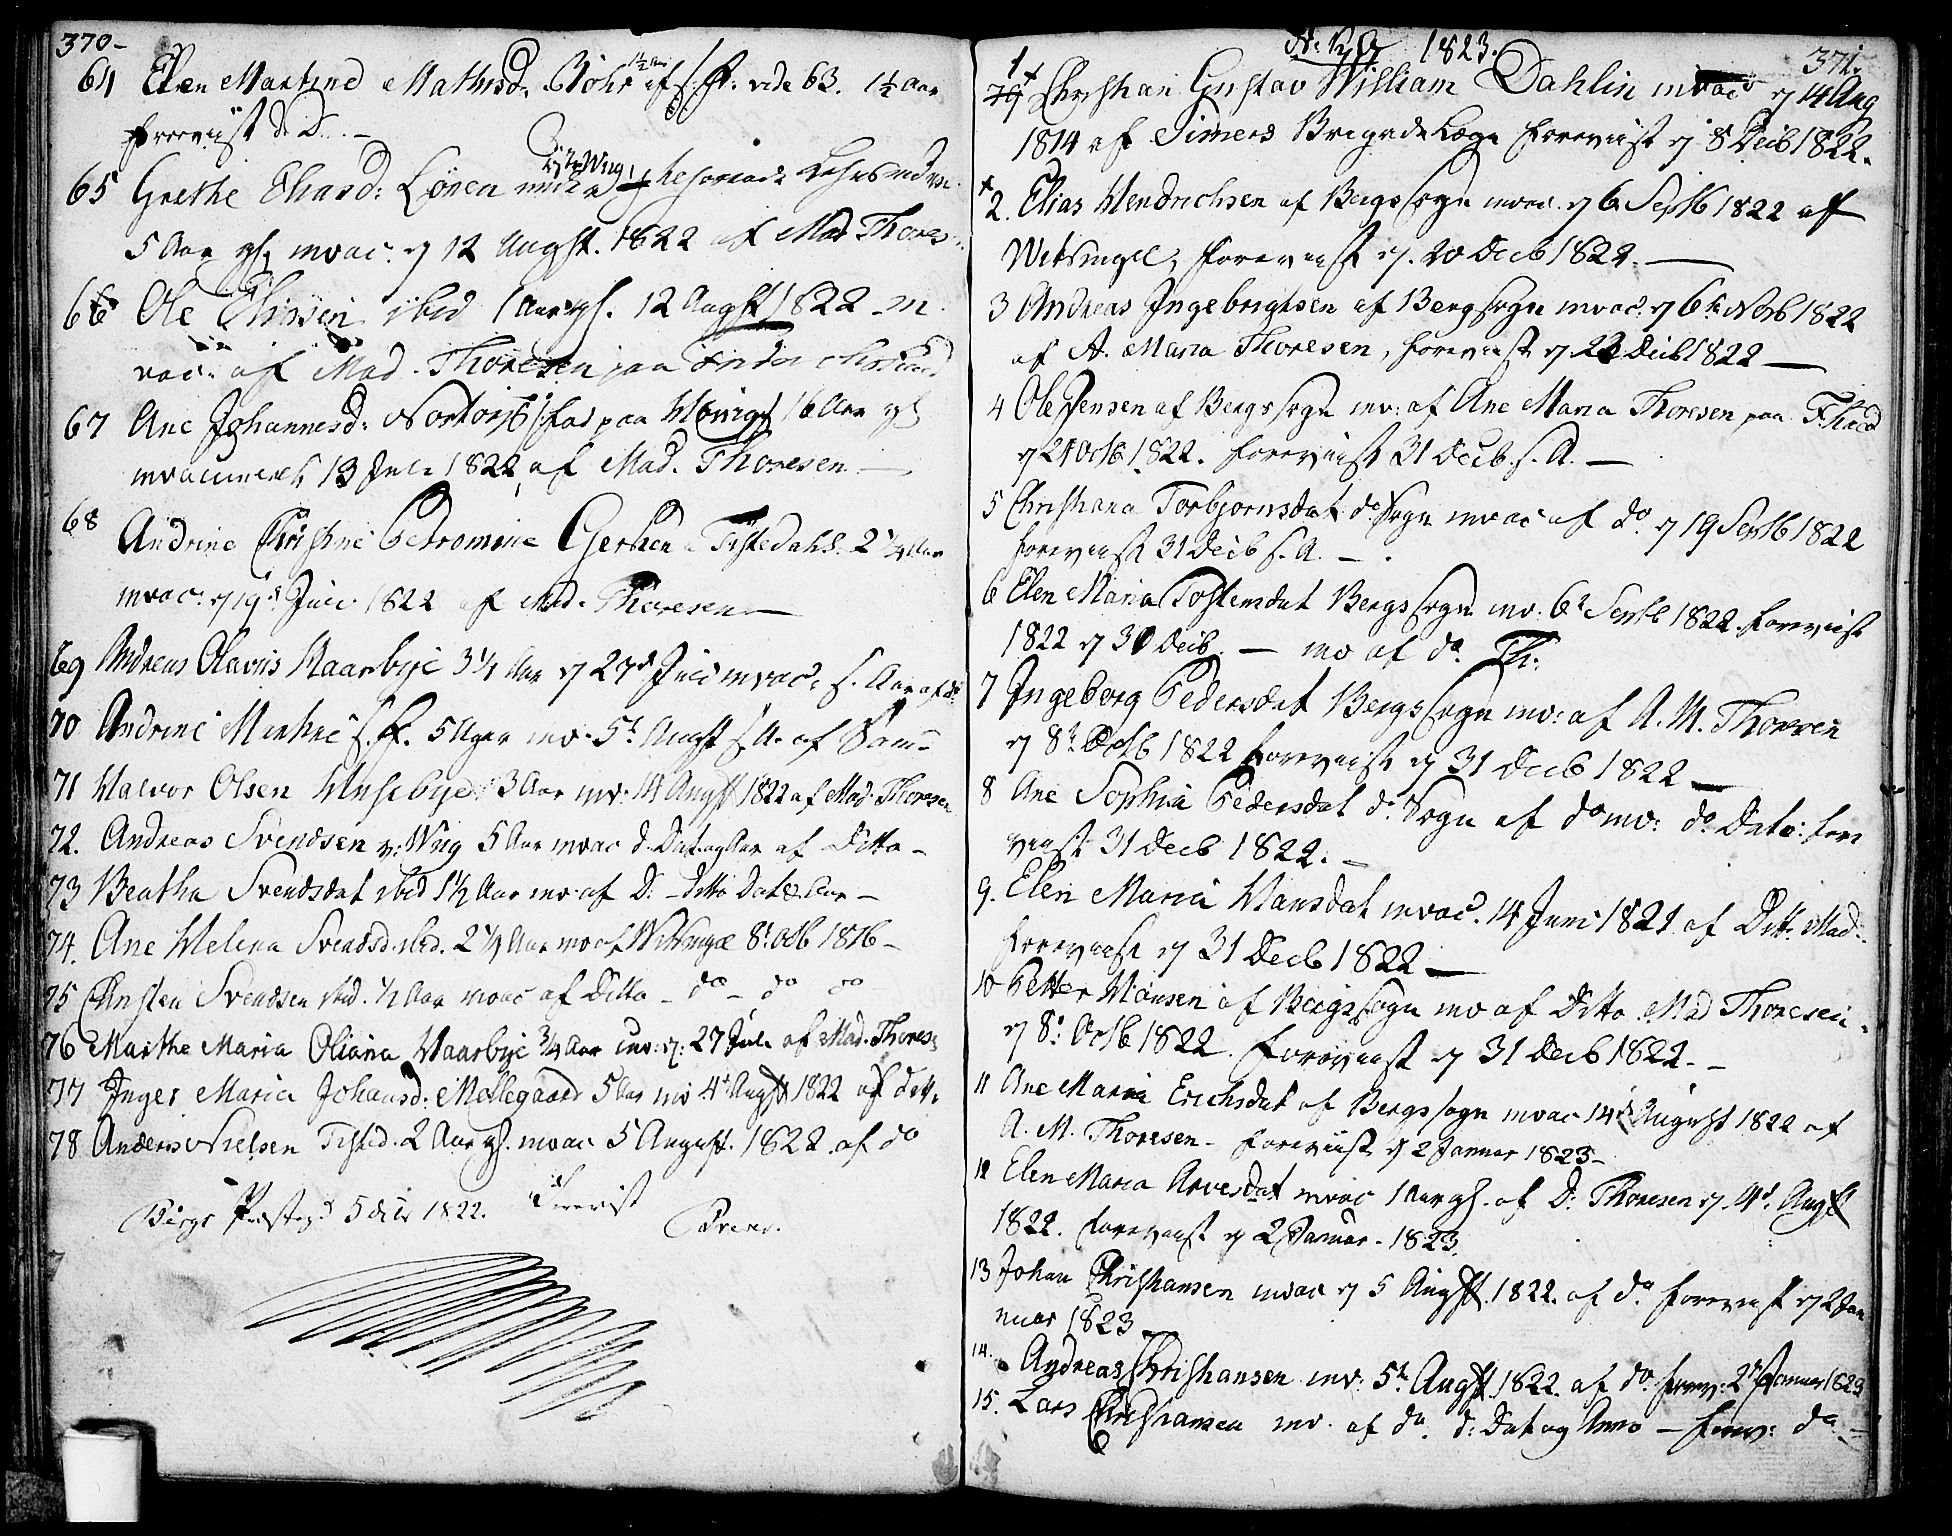 370-
64 Elen Martine Mathisd. Böhr af s: F: vide 63. 1½ Aar
foreviist d. D. . -
65 Grethe Eliasd: Lönen
5 Aar gl: mvac: d 12 Augst. 1822 af Mad Thores
66 Ole Elissen ibid 1 Aar gl. 12 Augst 1822 - m
vac: af Mad. Thoresen paa
67 Ane Johannesd: 16 Aar gl
mvaccineret 13 Juli 1822 af Mad. Thoresen -
68 Andrine Christine Petromine Gerhen Tistedahl. 2¼ Aar
mvac: d 19d Juli 1822 af Mad. Thoresen -
69 Andreas Olavus Haarbye 3¼ Aar d 27d Juli mvac: s. Aar af do
70 Andrine s. F. 5 Ager mv. 5t Augst s A. af Sam-
71 Halvor Olsen Husebye 3 Aar mv: 14 Augst 1822 af Mad. Thoresen
72. Andreas Svendsen v: Wiig 5 Aar mvac d. Dat og Aar af Ditto -
73 Beatha Svendsdat ibid 1½ Aar mv. af D. - ditto Dato Aar -
74. Ane Helena Svendsd. ibid. 2¼ Aar mv af Witsingel 8t Octb 1816 -
75 Christen Svendsen ibid. ½ Aar mvac af Ditto - do - do do
76 Marthe Maria Oliana Haarbye ¾ Aar mv: d: 27 Juli af Mad. Thores
77 Inger Maria Johansd. Möllegaard 5 Aar mv 4t Augst 1822 af ditto
78 Anders Nielsen Tisted. 2 Aar gl. mvac 5 August. 1822. af do
Bergs Præstegd 5 1822.
1823. 371.
1 Christian Gustav William Dahlin mvac d 14 Aug
1814 af Simers Brigade Læge foreviist d 8 Decb 1822.
2. Elias Hendrichsen af Bergs Sogn mvac. d 6 Septb 1822 af
Witsingel, foreviist d. 20 Decb 1822. -
3 Andreas Ingebrigtsen af Berg Sogn mvac. d 6te Novb 1822
af A. Maria Thoresen, foreviist d 23 Decb 1822 -
4 Ole Jensen af Bergs Sogn mv: af Ane Maria Thoresen paa
d 24 Octb 1822. foreviist 31 Decb. s. A. -
5 Christiana Torbjørnsdat do Sogn mvac af do d 19 Septb 1822
foreviist 31 Decb s. A. -
6 Elen Maria Tostensdat Bergs Sogn mv. 6t Septb 1822. foreviist
1822 d 31 Decb. - mv af do Th:
7 Ingeborg Pedersdat Bergs Sogn mv: af A. M. Thoresen
d 8t Octb 1822 foreviist d 31 Decb 1822 -
8 Ane Sophia Pedersdat do Sogn af do mv: do Dato: fore
viist 31 Decb 1822. -
9. Elen Maria Hansdat mvac. 14 Juni 1821 af Ditto Mad.
foreviist d 31 Decb 1822 -
10 Petter Hansen af Bergs Sogn mv af Ditto Mad Thoresen
d 8t Octb 1822. foreviist d 31 Decb 1822. -
11 Ane Maria Erichsdat af Bergs Sogn mvac 14d August 1822 af
A. M. Thoresen - foreviist d 2 Januar 1823 -
12 Elen Maria Arvesdat mvac 1 Aar gl. af D: Thoresen d. 4d. Augst
1822. foreviist d 2 Januar. 1823.
13 Johan Christiansen mvac d 5 Augst. 1822. af do foreviist d 2 Jan
nuar 1823
14. Andreas Christiansen mv: 5t Augst. 1822. af do forev: 2d Januar 1823
15. Lars Christiansen mv. af do. d: Dat og Anno - forev: do -